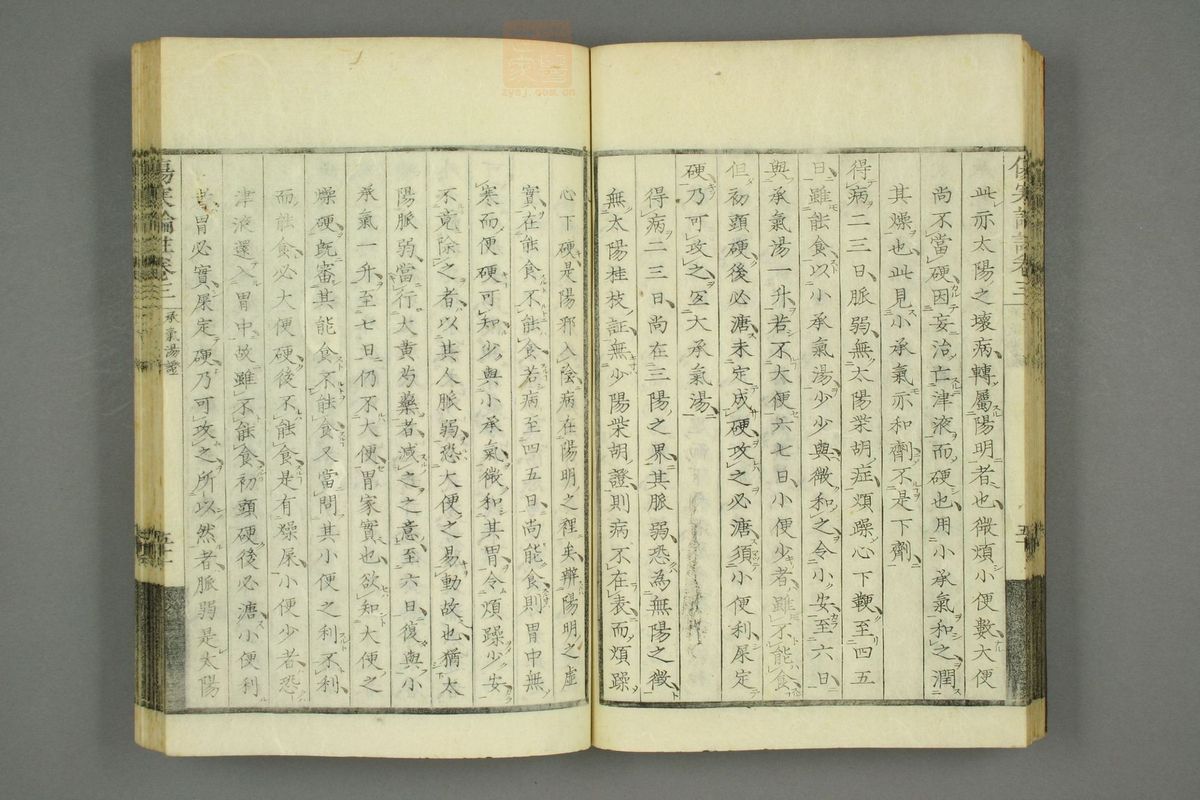 此亦太陽之壞病轉屬陽明者也微煩小便數大便
尚不當硬因妄治亡津液而硬也用小承氣和之潤
其燥也此見小承氣亦和劑不是下劑
得病二三日脈弱無太陽柴胡症煩躁心下鞕至四五
日雖能食以小承氣湯少少與微和之令小安至六日
與承氣湯一升若不大便六七日小便少者雖不能食
但初頭硬後必溏未定成硬攻之必溏須小便利屎定
硬乃可攻之宜大承氣湯
得病二三日尚在三陽之界其脈弱恐為無陽之徵
無太陽桂枝証無少陽柴胡證則病不在表而煩躁
心下硬是陽邪入陰病在陽明之裡矣辦陽明之虛
實在能食不能食若病至四五日尚能食則胃中無
寒而便硬可知少與小承氣微和其胃令煩躁少安
不竟除之者以其人脈弱恐大便之易動故也猶太
陽脈弱當行大黃芍藥者減之之意至六日復與小
承氣一升至七日仍不大便胃家實也欲知大便之
燥硬既審其能食不能食又當問其小便之利不利
而能食必大便硬後不能食是有燥屎小便少者恐
津液還入胃中故雖不能食初頭硬後必溏小便利
者胃必實屎定硬乃可攻之所以然者脈弱是太陽
傷寒論註卷三
承氣湯證
傷寒論註卷三
zysj.com.cn